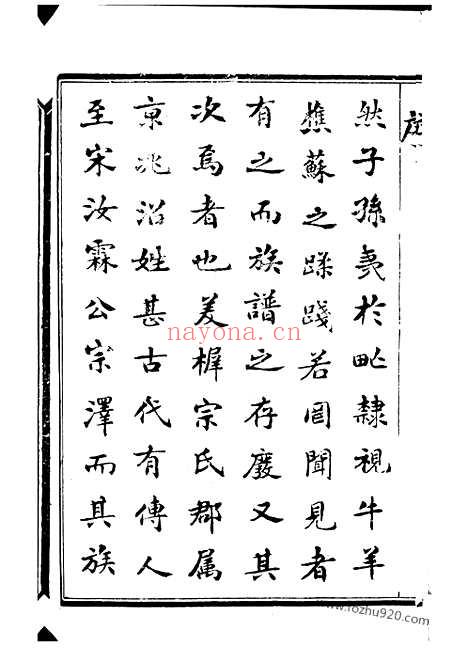 序
然子孫夷於甿隸視牛羊
樵蘇之蹂踐若罔聞見者
有之而族譜之存廢又其
次焉者也美樨宗氏郡属
京兆沿姓甚古代有傳人
至宋汝霖公宗澤而其族
nayona.cn
www.fozhu920.com